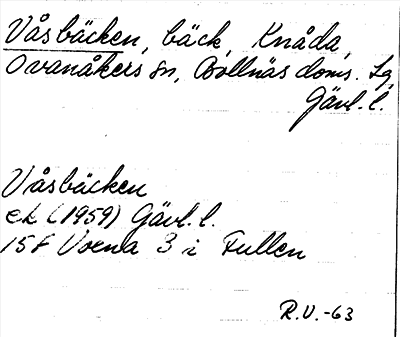 Våsbäcken, bäck, Knåda,
Ovanåkers sn, Bollnäs doms. Lg,
Gävl. l.
Våsbäcken
ek (1959) Gävl. l.
15F Voxna 3 i Fullen
R.V.-63